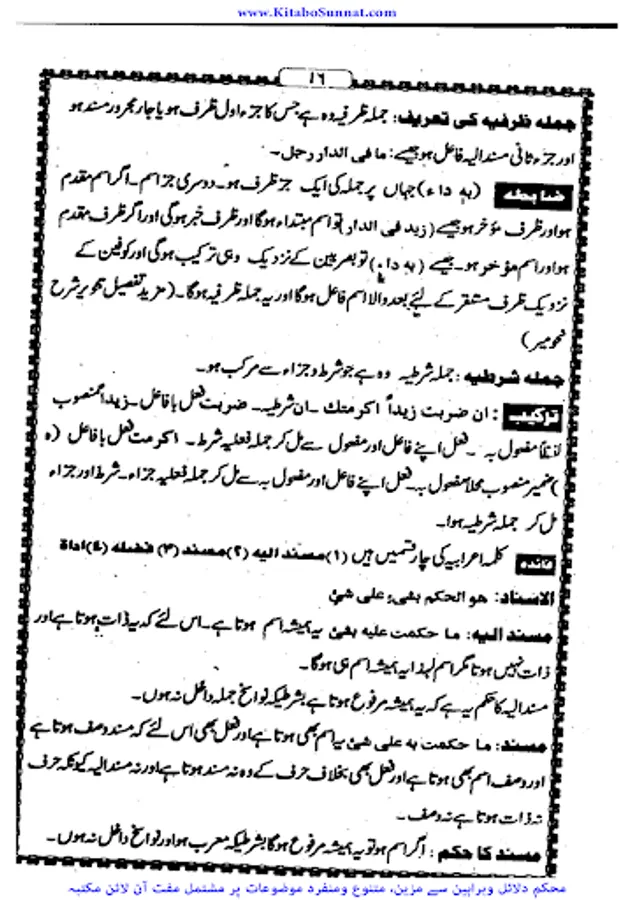 www.KitaboSunnat.com
۱۶
جملہ ظرفیہ کی تعریف: جملہ ظرفیہ وہ ہے جس کا جزء اول ظرف ہو یا جار مجرور مسند ہو
اور جزء ثانی مسند الیہ فاعل ہو جیسے: ما فی الدار رجل۔
ضابطہ (بہ داء) جہاں پر جملہ کی ایک جز ظرف ہو۔ دوسری جز اسم۔ اگر اسم مقدم
ہو اور ظرف مؤخر ہو جیسے (زید فی الدار) تو اسم مبتداء ہوگا اور ظرف خبر ہوگی اور اگر ظرف مقدم
ہو اور اسم مؤخر ہو۔ جیسے (بہ داء) تو بصریین کے نزدیک وہی ترکیب ہوگی اور کوفین کے
نزدیک ظرف مستقر کے لئے بعد والا اسم فاعل ہوگا اور یہ جملہ ظرفیہ ہوگا۔ (مزید تفصیل تحویر شرح
نحومیر)
جملہ شرطیہ: جملہ شرطیہ وہ ہے جو شرط و جزاء سے مرکب ہو۔
ترکیب: ان ضربت زیداً اکرمتك۔ ان شرطیہ۔ ضربت فعل با فاعل۔ زیداً منصوب
لفظاً مفعول بہ۔ فعل اپنے فاعل اور مفعول سے مل کر جملہ فعلیہ شرط۔ اکرمت فعل با فاعل (ہ
)ضمیر منصوب محلاً مفعول بہ۔ فعل اپنے فاعل اور مفعول بہ سے مل کر جملہ فعلیہ جزاء۔ شرط اور جزاء
مل کر جملہ شرطیہ ہوا۔
فائدہ کلمہ اعرابیہ کی چار قسمیں ہیں (۱) مسند الیہ (۲) مسند (۳) فضلہ (٤) اداة
الاسناد: هو الحکم بشیء علی شئ
مسند الیہ: ما حکمت علیہ بشئ یہ ہمیشہ اسم ہوتا ہے۔ اس لئے کہ یہ ذات ہوتا ہے اور
ذات نہیں ہوتا مگر اسم لہذا یہ ہمیشہ اسم ہی ہوگا۔
مسند الیہ کا حکم یہ ہے کہ یہ ہمیشہ مرفوع ہوتا ہے بشرطیکہ نواسخ جملہ داخل نہ ہوں۔
مسند: ما حکمت بہ علی شئ یہ اسم بھی ہوتا ہے اور فعل بھی اس لئے کہ مسند وصف ہوتا ہے
اور وصف اسم بھی ہوتا ہے اور فعل بھی بخلاف حرف کے وہ نہ مسند ہوتا ہے اور نہ مسند الیہ کیونکہ حرف
نہ ذات ہوتا ہے نہ وصف۔
مسند کا حکم: اگر اسم ہو تو یہ ہمیشہ مرفوع ہوگا بشرطیکہ معرب ہو اور نواسخ داخل نہ ہوں۔
محکم دلائل وبراہین سے مزین، متنوع ومنفرد موضوعات پر مشتمل مفت آن لائن مکتبہ